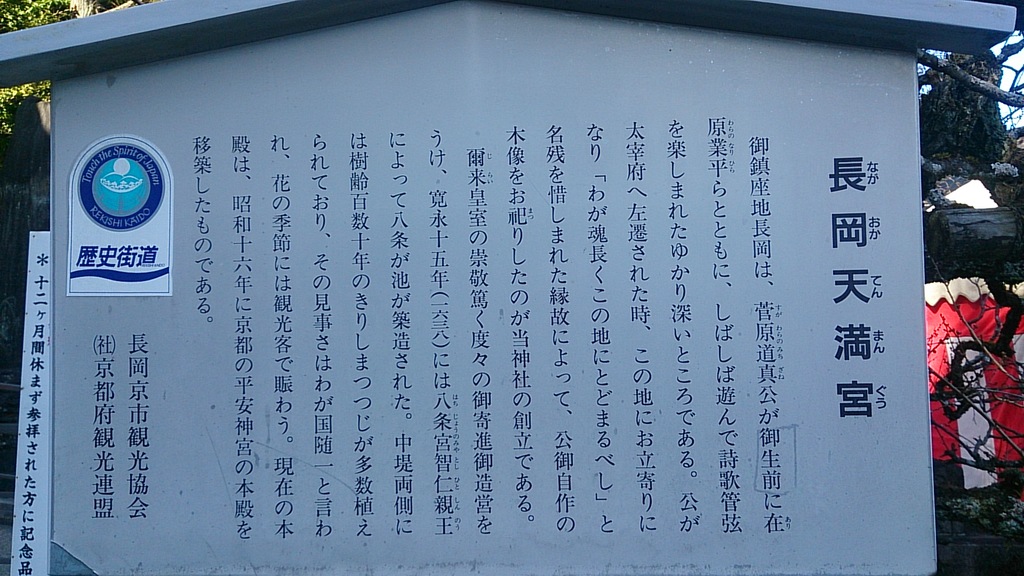 長岡天満宮
なが おか てん まん ぐう
御鎮座地長岡は、菅原道真公が御生前に在
原業平らとともに、しばしば遊んで詩歌管弦
を楽しまれたゆかり深いところである。公が
太宰府へ左遷された時、この地にお立寄りに
なり「わが魂長くこの地にとどまるべし」と
名残を惜しまれた縁故によって、公御自作の
木像をお祀りしたのが当神社の創立である。
爾来皇室の崇敬篤く度々の御寄進御造営を
うけ、寛永十五年(一六三八)には八条宮智仁親王
によって八条が池が築造された。中堤両側に
は樹齢百数十年のきりしまつつじが多数植え
られており、その見事さはわが国随一と言わ
れ、花の季節には観光客で賑わう。現在の本
殿は、昭和十六年に京都の平安神宮の本殿を
移築したものである。
長岡京市観光協会
(社)京都府観光連盟
Touch the Spirit of Japan
REKISHI KAIDO
歴史街道
*十二ヶ月間休まず参拝された方に記念品